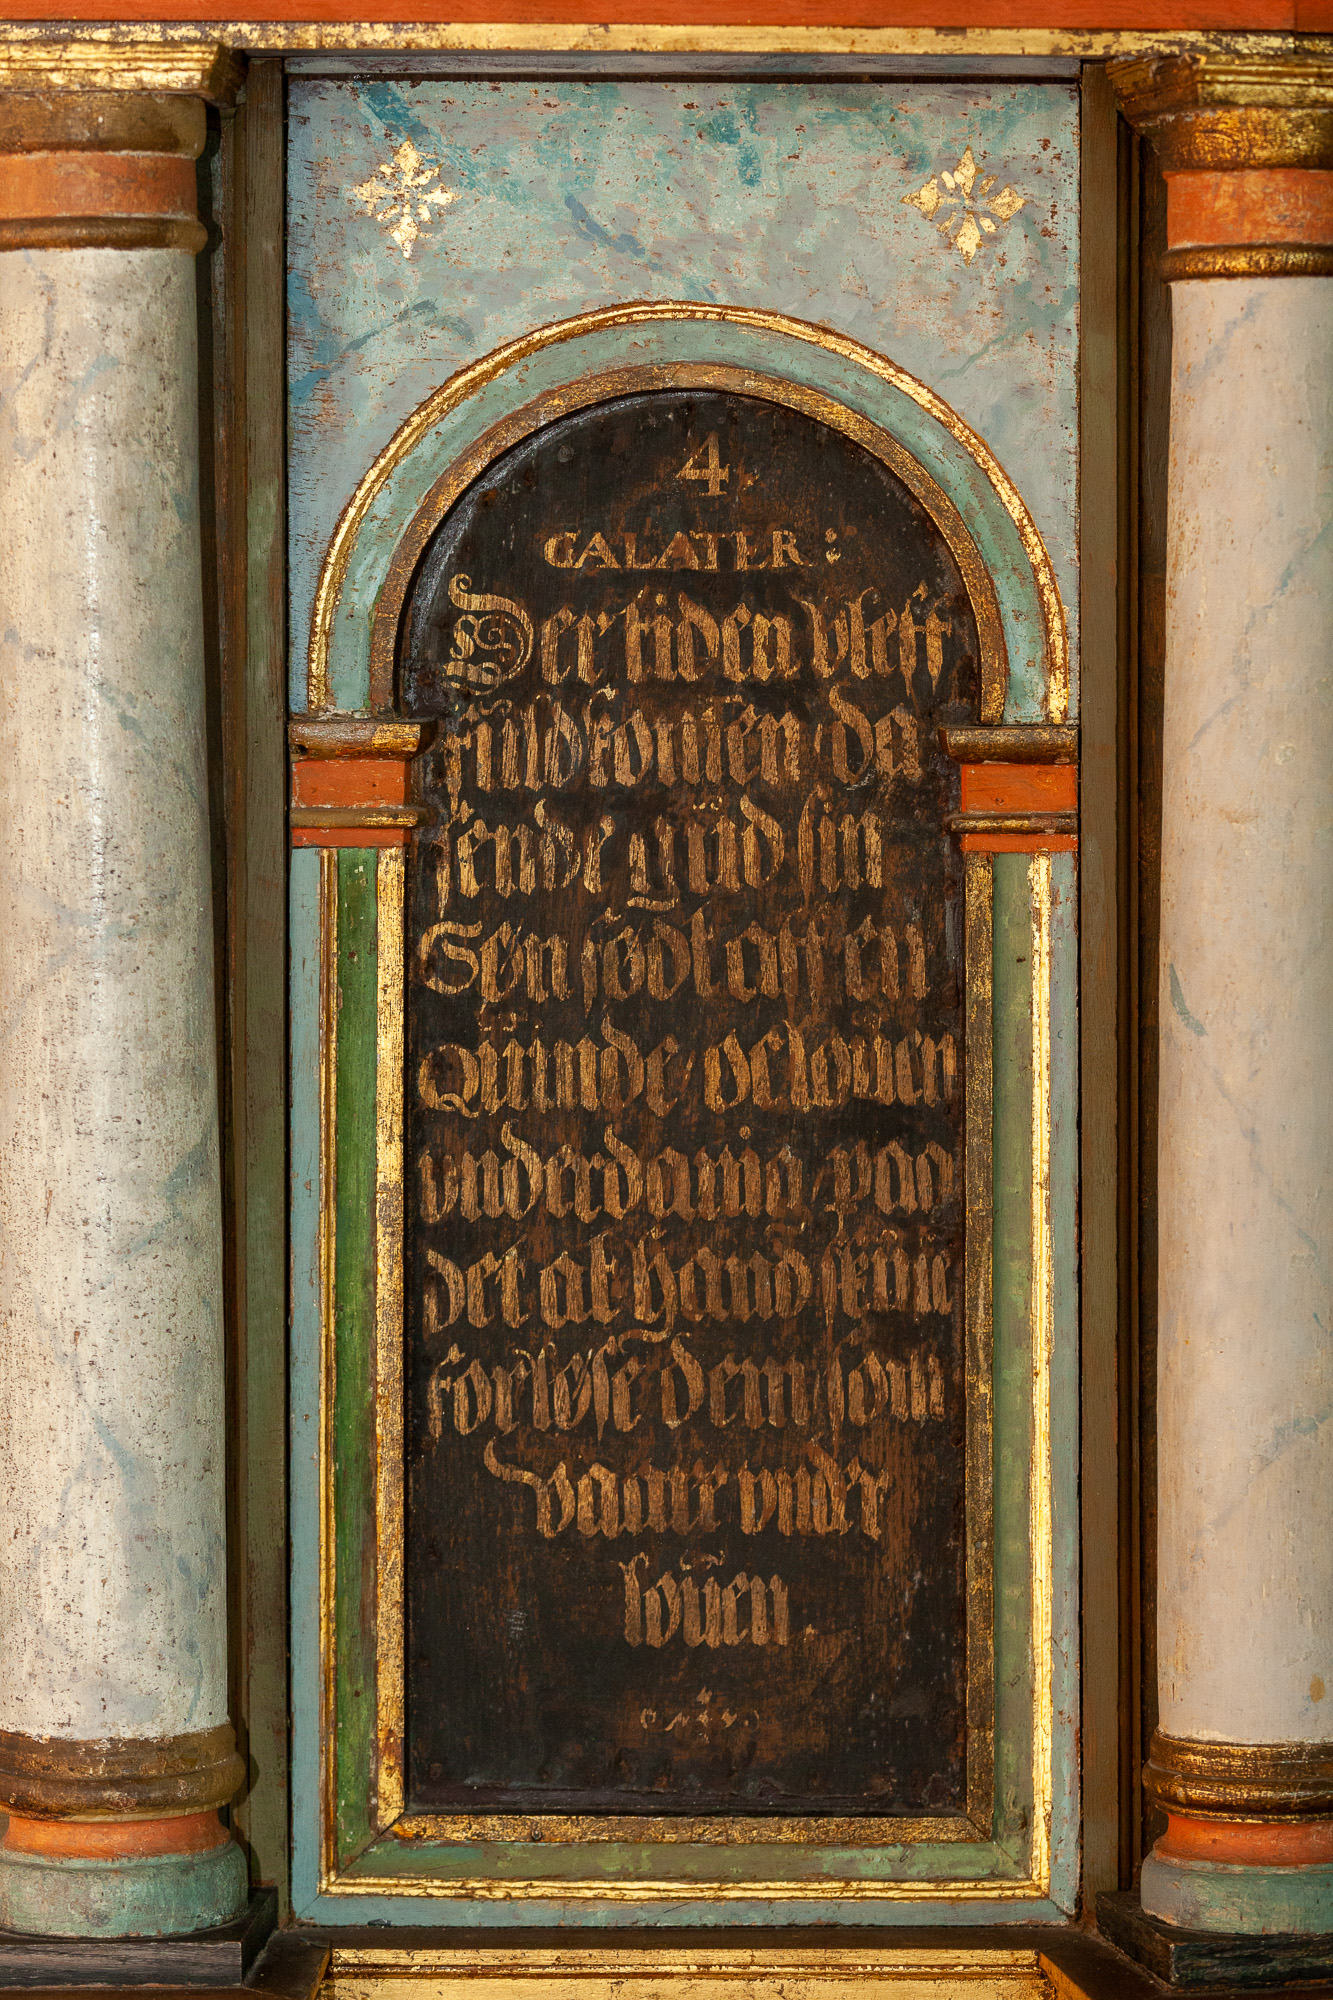 4
GALATER:
Der tiden bleff
fuld kom̄en da
sende gŭd sin
Søn født aff en
Quinde oc loŭen
vnderdanig paa
det at hand skŭle
forløse dem som
vaare vnder
loŭen.